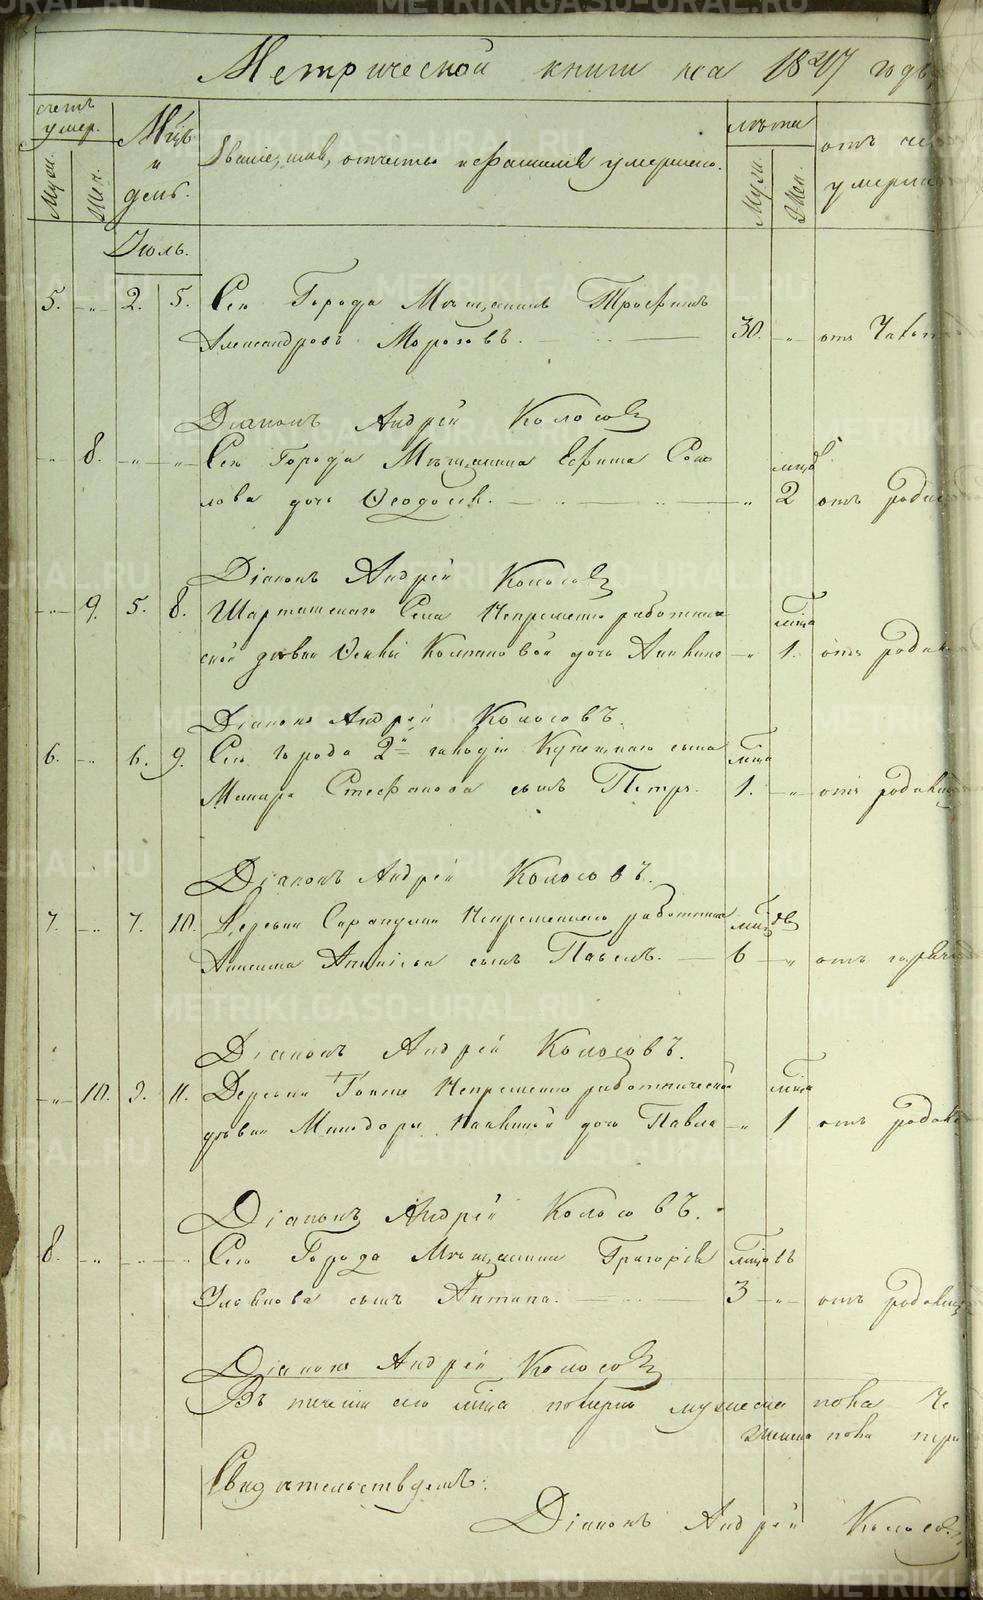 Метрической книги на 1847 годъ
счетъ умер.
Муж.
Жен.
Мцъ и день.
Званіе, имя, отчество и фамилія умершаго.
лѣта
Муж.
Жен.
отъ чего
умерш
Іюль.
5. -"- 2. 5. Сего Города Мѣщанинъ Трофимъ
Александровъ Морозовъ. 30. -"- отъ Чахот
Діаконъ Андрей Колосовъ
-"- 8. -"- -"- Сего Города Мѣщанина Соко
лова дочь Ѳеодосія. мцов -"- 2 отъ Родим
Діаконъ Андрей Колосовъ
-"- 9. 5. 8. Шарташскаго Села Непременно работниче
ской дѣвки дочь мца -"- 1. отъ Родим
Діаконъ Андрей Колосовъ.
6. -"- 6. 9. Сего города 2й гильдіи Купеческаго сына
Макара Стефанова сынъ Петръ. мца 1. -"- отъ родимца
Діаконъ Андрей Колосовъ.
7. -"- 7. 10. Деревни Сарапулки Непременнаго работника
Анисима сынъ Павелъ. мцов 6 -"- отъ горячк
Діаконъ Андрей Колосовъ.
-"- 10. 9. 11. Деревни Непременно работнической
дѣвки Минодоры дочь Павла мца -"- 1 отъ родимц
Діаконъ Андрей Колосовъ.
8. -"- -"- -"- Сего Города Мѣщанина Григорія
сынъ Антипа. мцовъ 3 -"- отъ родимц
Діаконъ Андрей Колосовъ
Въ теченіи сего мца померло мужеска пола Че
женска пола
Свидѣтельствуемъ:
Діаконъ Андрей Колосов
METRIKI.GASO-URAL.RU